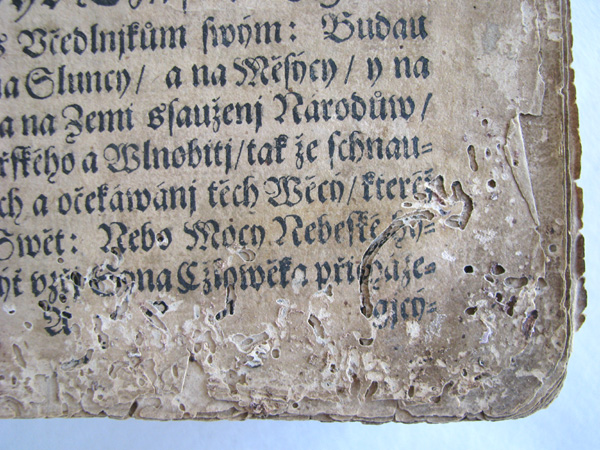 Včedlnjkům swým: Budau
na Sluncy/ a na Měsýcy/ y na
a na Zemi ssaužení Národůw/
ořského a Wlnobitj/ tak že schnau-
ch a očekáwánj těch Wěcý/ kteréž
Swět: Nebo Mocy Nebeské hý-
vzřj Syna Cžlowěka přicháze-